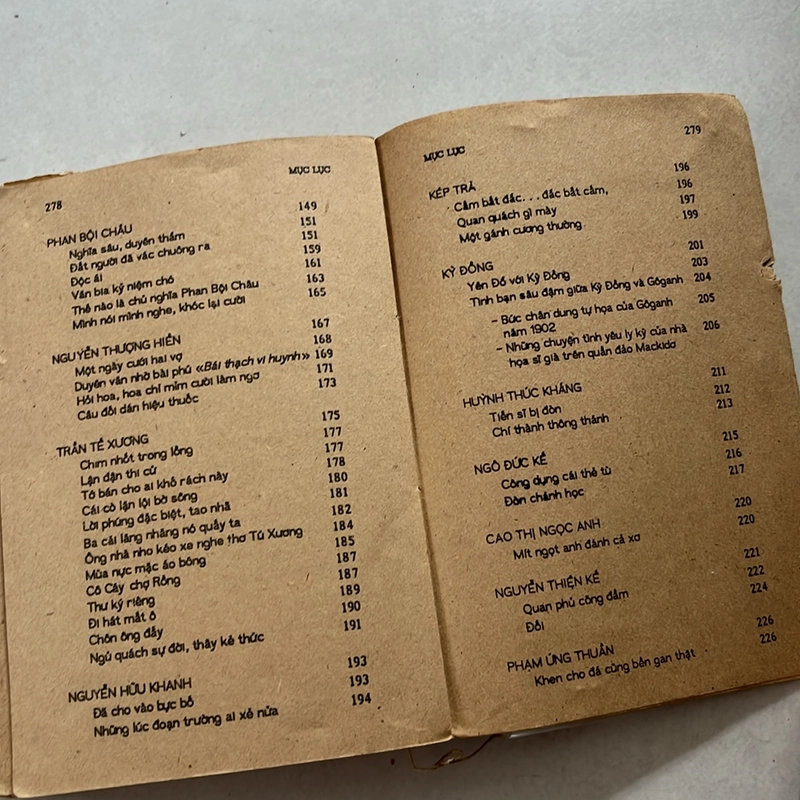 278
MỤC LỤC
PHAN BỘI CHÂU 149
Nghĩa sâu, duyên thắm 151
Đất người đã vác chuông ra 151
Độc ái 159
Văn bia kỷ niệm chó 161
Thế nào là chủ nghĩa Phan Bội Châu 163
Mình nói mình nghe, khóc lại cười 165
NGUYỄN THƯỢNG HIỀN 167
Một ngày cưới hai vợ 168
Duyên văn nhờ bài phú «Bái thạch vi huynh» 169
Hỏi hoa, hoa chỉ mỉm cười làm ngơ 171
Câu đối dán hiệu thuốc 173
TRẦN TẾ XƯƠNG 175
Chim nhốt trong lồng 177
Lận đận thi cử 177
Tớ bán cho ai khố rách này 178
Cái cò lặn lội bờ sông 180
Lời phúng đặc biệt, tao nhã 181
Ba cái lăng nhăng nó quấy ta 182
Ông nhà nho kéo xe nghe thơ Tú Xương 184
Mùa nực mặc áo bông 185
Cô Cáy chợ Rồng 187
Thư ký riêng 187
Đi hát mất ô 189
Chôn ông đấy 190
Ngủ quách sự đời, thây kẻ thức 191
NGUYỄN HỮU KHANH 193
Đã cho vào bực bồ 193
Những lúc đoạn trường ai xẻ nửa 194
279
MỤC LỤC
KÉP TRÀ 196
Cầm bất đắc... đắc bất cầm, 196
Quan quách gì mày 197
Một gánh cương thường 199
KỲ ĐỒNG 201
Yên Đổ với Kỳ Đồng 203
Tình bạn sâu đậm giữa Kỳ Đồng và Gôganh 204
– Bức chân dung tự họa của Gôganh 205
năm 1902
– Những chuyện tình yêu ly kỳ của nhà 206
họa sĩ già trên quần đảo Mackidơ
HUỲNH THÚC KHÁNG 211
Tiến sĩ bị đòn 212
Chí thành thông thánh 213
NGÔ ĐỨC KẾ 215
Công dụng cái thẻ tù 216
Đòn chánh học 217
CAO THỊ NGỌC ANH 220
Mít ngọt anh đánh cả xơ 220
NGUYỄN THIỆN KẾ 221
Quan phủ công đảm 222
Đồi 224
PHẠM ỨNG THUẦN 226
Khen cho đá cũng bền gan thật 226